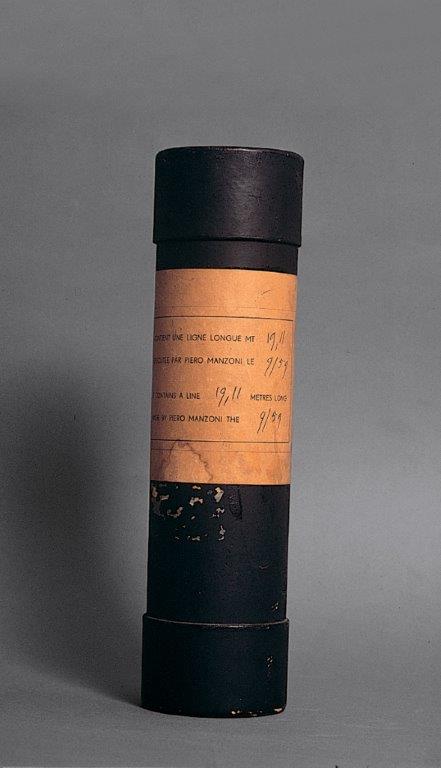 CONTIENT UNE LIGNE LONGUE MT 19,11
EXECUTÉE PAR PIERO MANZONI LE 9/59
CONTAINS A LINE 19,11 METRES LONG
MADE BY PIERO MANZONI THE 9/59